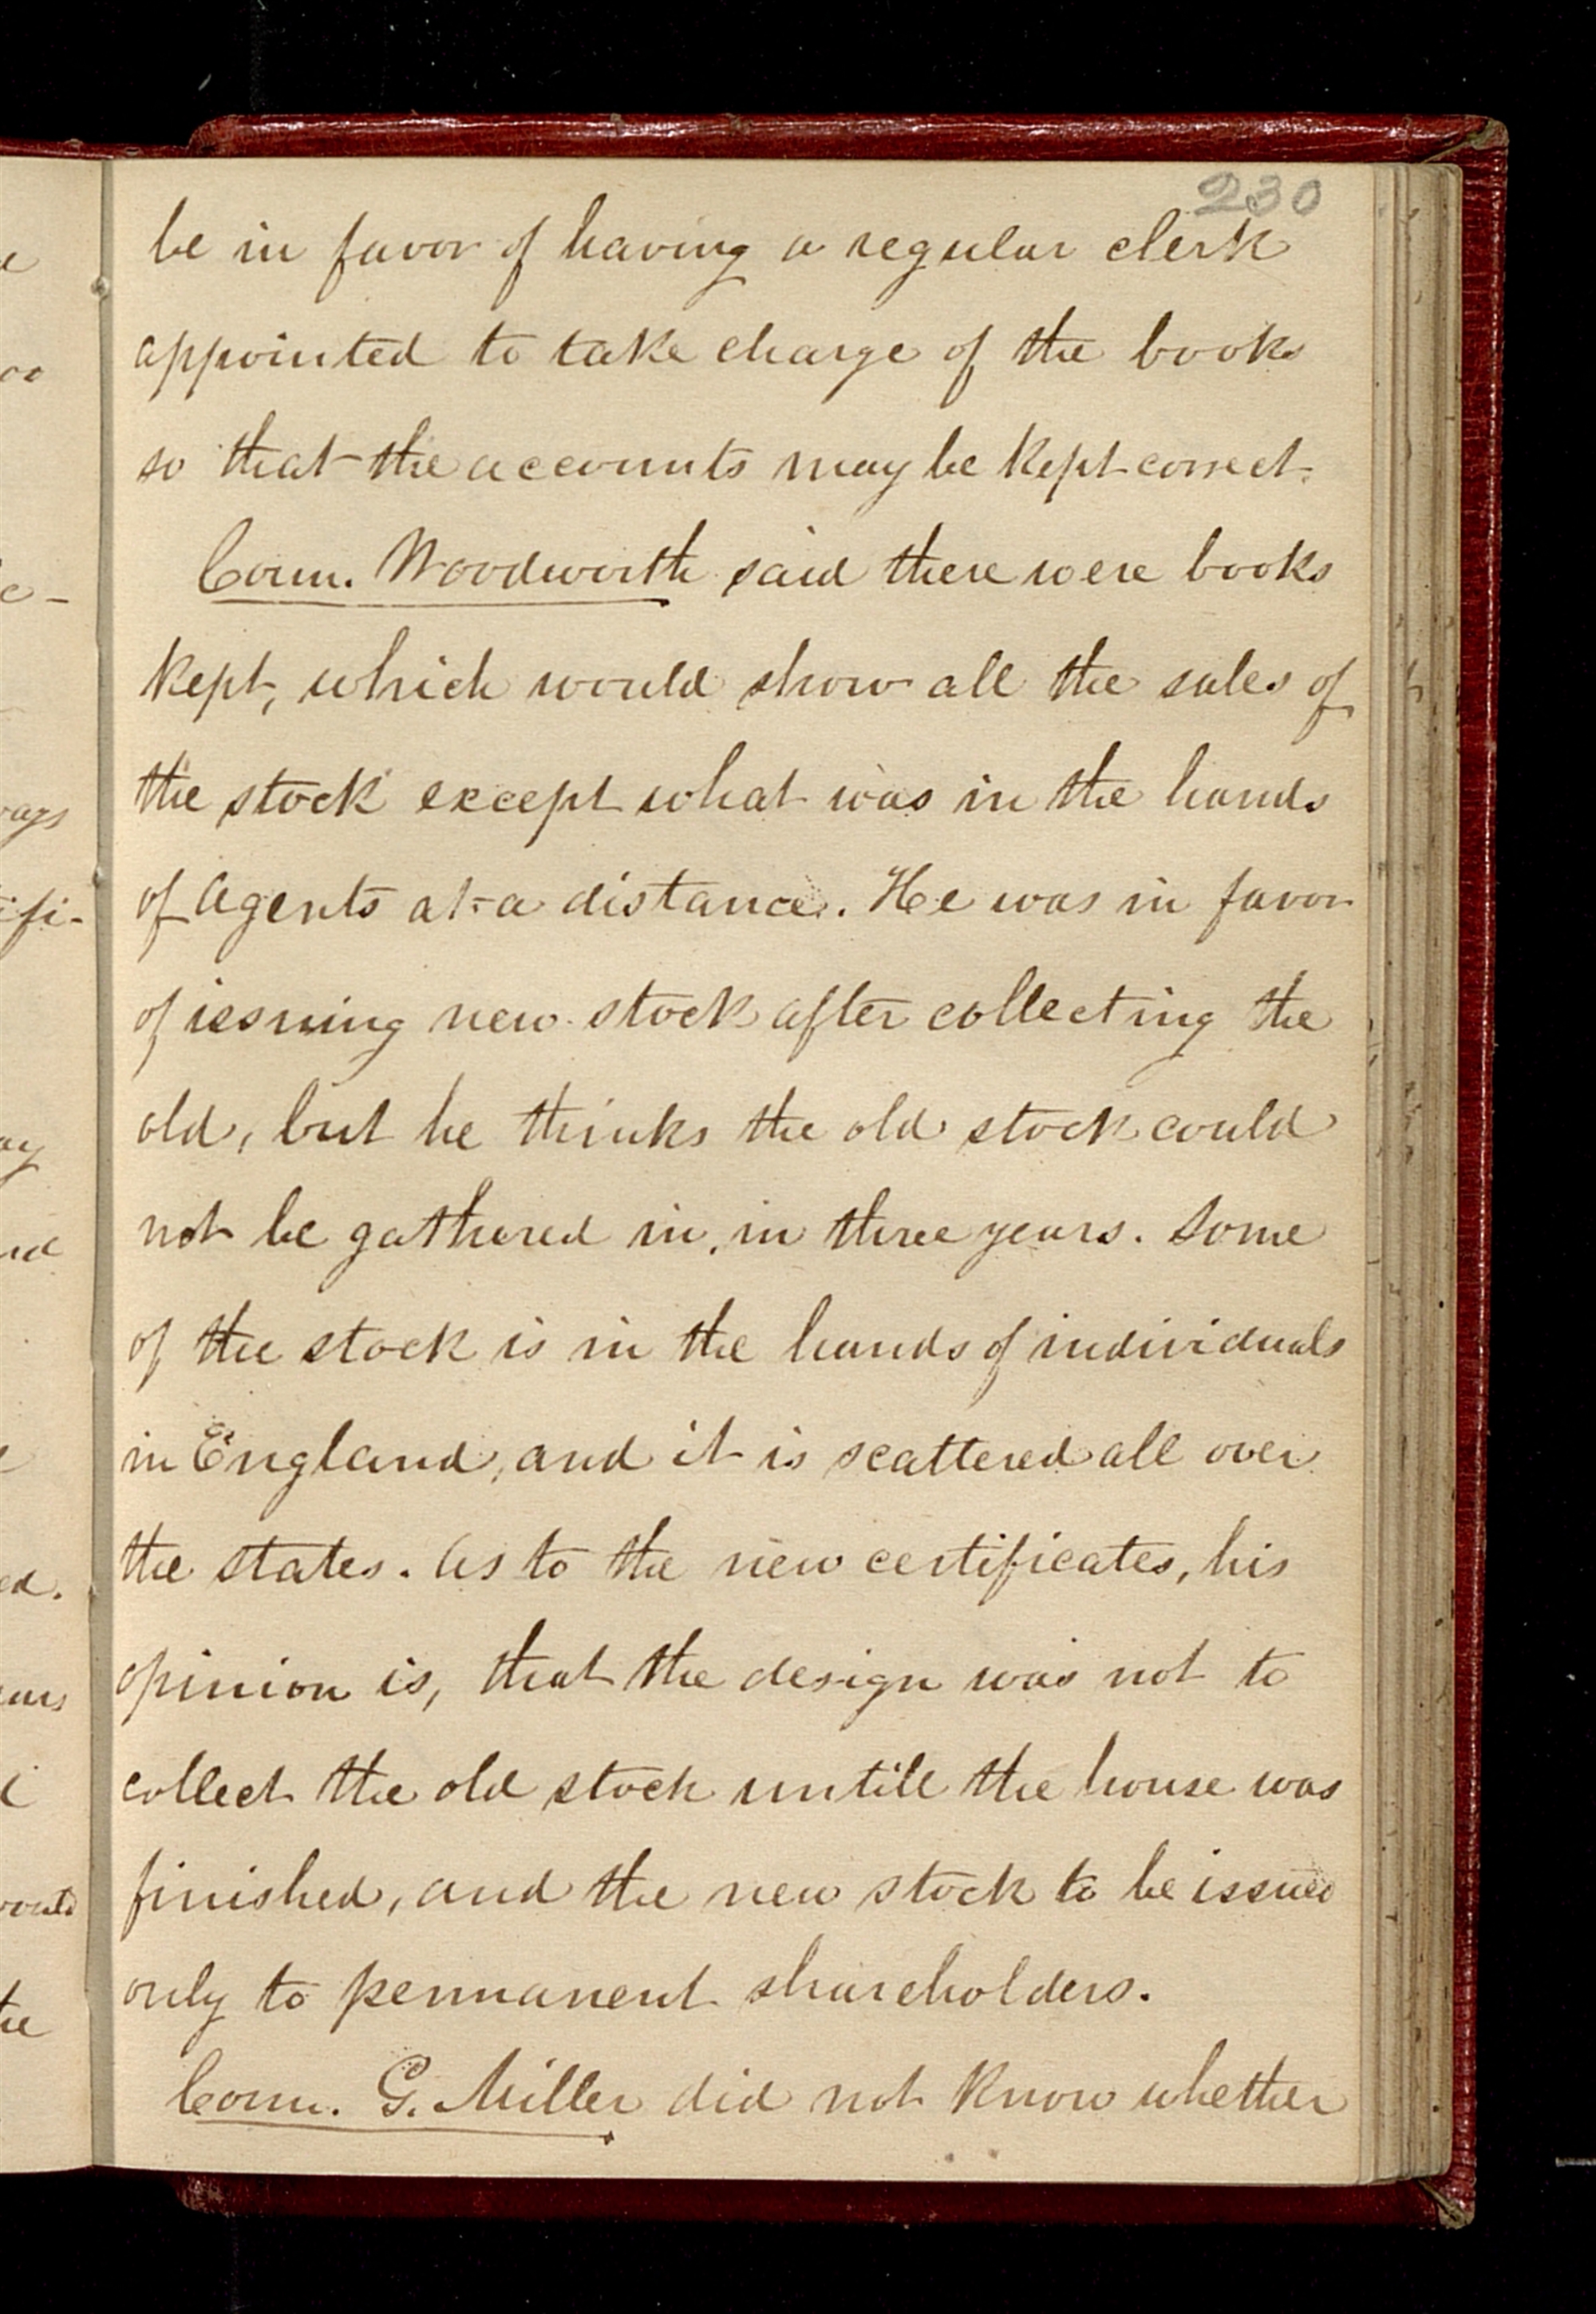 230
be in favor of having a regular clerk
appointed to take charge of the books
so that the accounts may be kept correct.
Coun. Woodworth said there were books
kept, which would show all the sales of
the stock except what was in the hands
of Agents at a distance. He was in favor
of issuing new stock after collecting the
old, but he thinks the old stock could
not be gathered in, in three years. Some
of the stock is in the hands of individuals
in England, and it is scattered all over
the states. As to the new certificates, his
opinion is, that the design was not to
collect the old stock untill the house was
finished, and the new stock to be issued
only to permanent shareholders.
Coun. G. Miller did not know whether